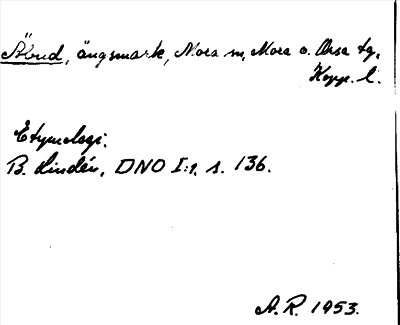 Åbud, ängsmark, Mora sn, Mora o. Orsa tg,
Kopp. l.
Etymologi:
B. Lindén, DNO I:1, s. 136.
A. R. 1953.